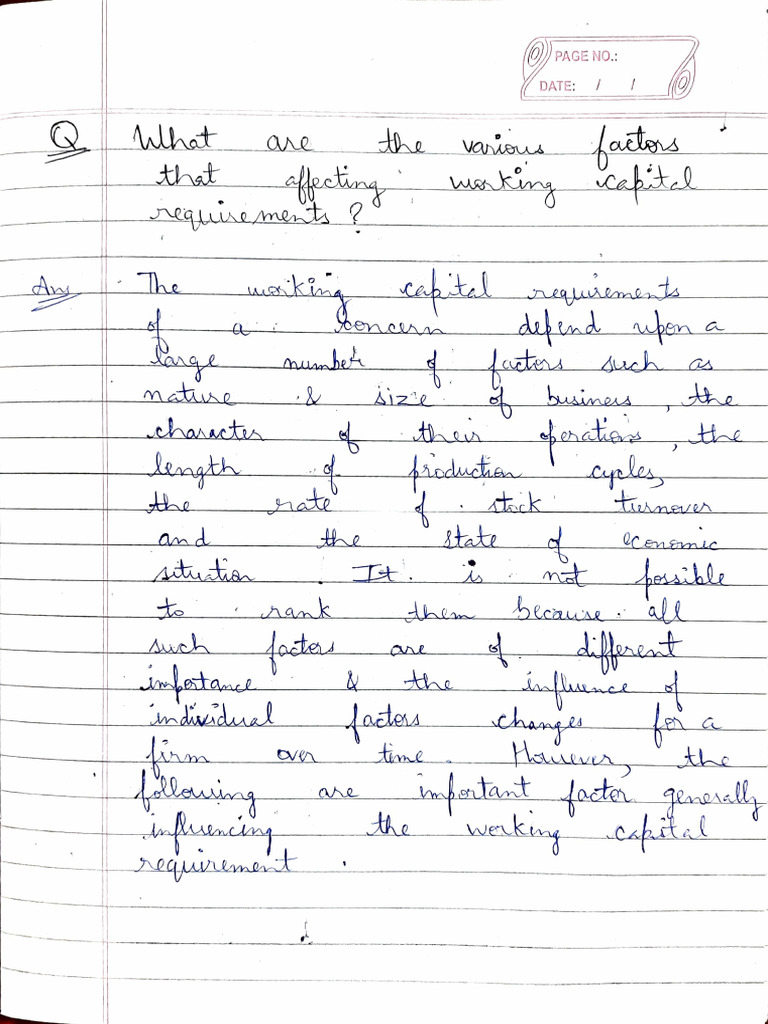 PAGE NO.:
DATE: / /
Q What are the various factors
that affecting working capital
requirements ?
Ans The working capital requirements
of a concern depend upon a
large number of factors such as
nature & size of business, the
character of their operations, the
length of production cycles,
the rate of stock turnover
and the state of economic
situation. It is not possible
to rank them because all
such factors are of different
importance & the influence of
individual factors changes for a
firm over time. However, the
following are important factor generally
influencing the working capital
requirement.